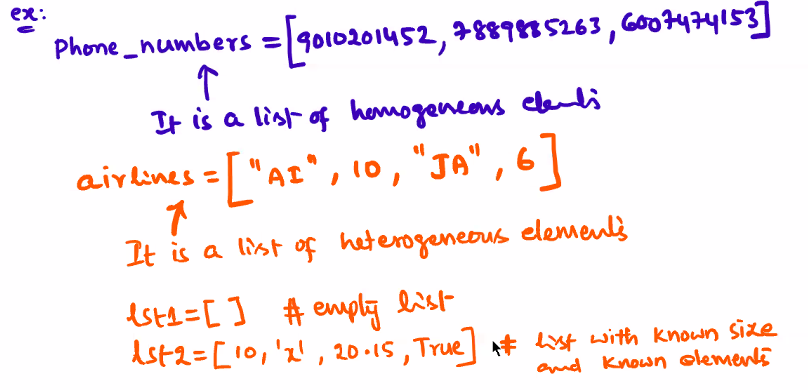 ex:
Phone_numbers = [9010201452, 7889885263, 6007474153]
It is a list of homogeneous elements
airlines = ["AI", 10, "JA", 6]
It is a list of heterogeneous elements
lst1 = [ ] # empty list
lst2 = [10, 'x', 20.15, True] # list with known size
and known elements